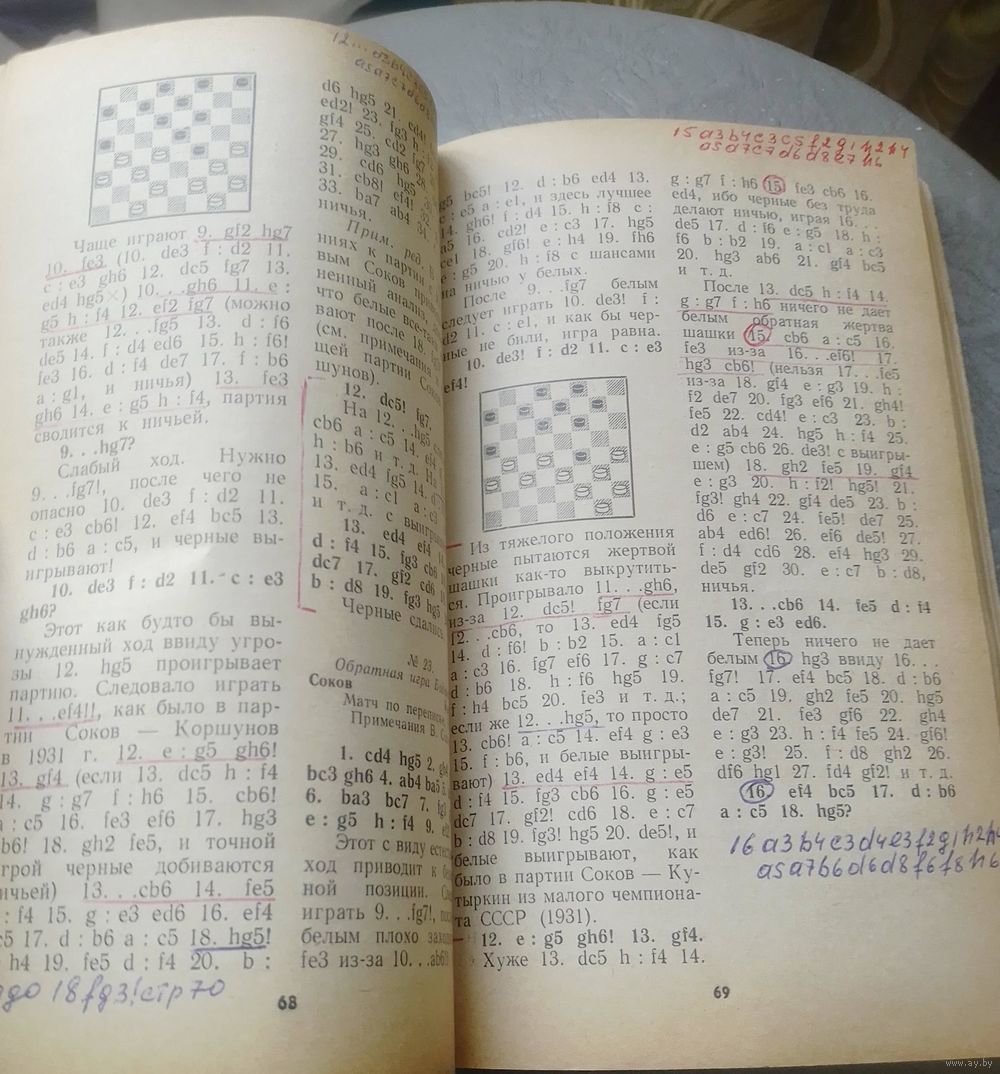 12...a3b4c
a5a7c7d6d8
Чаще играют 9. gf2 hg7
10. fe3 (10. de3 f : d2 11.
c : e3 gh6 12. dc5 fg7 13.
ed4 hg5×) 10. . .gh6 11. e :
g5 h : f4 12. ef2 fg7 (можно
также 12. . .fg5 13. d : f6
de5 14. f : d4 ed6 15. h : f6!
fe3 16. d : f4 de7 17. f : b6
a : g1, и ничья) 13. fe3
gh6 14. e : g5 h : f4, партия
сводится к ничьей.
9. . .hg7?
Слабый ход. Нужно
9. . .fg7!, после чего не
опасно 10. de3 f : d2 11.
c : e3 cb6! 12. ef4 bc5 13.
d : b6 a : c5, и черные вы-
игрывают!
10. de3 f : d2 11. c : e3
gh6?
Этот как будто бы вы-
нужденный ход ввиду угро-
зы 12. hg5 проигрывает
партию. Следовало играть
11. . .ef4!!, как было в пар-
тии Соков — Коршунов
в 1931 г. 12. e : g5 gh6!
13. gf4 (если 13. dc5 h : f4
14. g : g7 f : h6 15. cb6!
a : c5 16. fe3 ef6 17. hg3
b6! 18. gh2 fe5, и точной
грой черные добиваются
ничьей) 13. . .cb6 14. fe5
: f4 15. g : e3 ed6 16. ef4
c5 17. d : b6 a : c5 18. hg5!
h4 19. fe5 d : f4 20. b :
18fg3! стр 70
68
d6 hg5 21. cd4!
ed2! 23. fg3 h
gf4 25. cd2 fg7
27. hg3 gh6 28.
29. cd6 hg5
31. cb8! ef4!
33. ba7 ab4
ничья.
Прим. ред. В
ниях к партии
вым Соков
ненный анализ,
что белые все-та
вают после 18.
(см. примечания
щей партии Соков
шунов).
12. dc5! fg7.
На 12. . .hg5
cb6 a : c5 14. ef4
h : b6 и т. д. На
13. ed4 fg5 14.
15. a : c1 a : c3
и т. д. с выигры
13. ed4 ef4
d : f4 15. fg3 cb6
dc7 17. gf2 cd6
b : d8 19. fg3 hg5
Черные сдались
№ 23.
Обратная игра
Соков
Матч по переписке
Примечания В. Со
1. cd4 hg5 2. gh4
bc3 gh6 4. ab4 ba5
6. ba3 bc7 7. fg3
e : g5 h : f4 9.
Этот с виду есте
ход приводит к
ной позиции. С
играть 9. . .fg7!,
белым плохо заходи
fe3 из-за 10. . .ab6
15 a3b4e3c5f2g1h2h4
a5a7c7d6d8e7h6
g5 bc5! 12. d : b6 ed4 13.
c : e5 a : e1, и здесь лучшее
14. gh6! f : d4 15. h : f8 c :
a5 16. cd2! e : c3 17. hg5
ce1 18. gf6! e : h4 19. fh6
e : g5 20. h : f8 с шансами
на ничью у белых.
После 9. . .fg7 белым
следует играть 10. de3! f :
d2 11. c : e1, и как бы чер-
ные не били, игра равна.
10. de3! f : d2 11. c : e3
ef4!
Из тяжелого положения
черные пытаются жертвой
шашки как-то выкрутить-
ся. Проигрывало 11. . .gh6,
из-за 12. dc5! fg7 (если
12. . .cb6, то 13. ed4 fg5
14. d : f6! b : b2 15. a : c1
a : c3 16. fg7 ef6 17. g : c7
d : b6 18. h : f6 hg5 19.
f : h4 bc5 20. fe3 и т. д.;
если же 12. . .hg5, то просто
13. cb6! a : c5 14. ef4 g : e3
15. f : b6, и белые выигры-
вают) 13. ed4 ef4 14. g : e5
d : f4 15. fg3 cb6 16. g : e5
dc7 17. gf2! cd6 18. e : c7
b : d8 19. fg3! hg5 20. de5!, и
белые выигрывают, как
было в партии Соков — Ку-
тыркин из малого чемпиона-
та СССР (1931).
12. e : g5 gh6! 13. gf4.
Хуже 13. dc5 h : f4 14.
g : g7 f : h6 15. fe3 cb6 16.
ed4, ибо черные без труда
делают ничью, играя 16. . .
de5 17. d : f6 e : g5 18. h :
f6 b : b2 19. a : c1 a : c3
20. hg3 ab6 21. gf4 bc5
и т. д.
После 13. dc5 h : f4 14.
g : g7 f : h6 ничего не дает
белым обратная жертва
шашки 15. cb6 a : c5 16.
fe3 из-за 16. . .ef6! 17.
hg3 cb6! (нельзя 17. . .fe5
из-за 18. gf4 e : g3 19. h :
f2 de7 20. fg3 ef6 21. gh4!
fe5 22. cd4! e : c3 23. b :
d2 ab4 24. hg5 h : f4 25.
e : g5 cb6 26. de3! с выигры-
шем) 18. gh2 fe5 19. gf4
e : g3 20. h : f2! hg5! 21.
fg3! gh4 22. gf4 de5 23. b :
d6 e : c7 24. fe5! de7 25.
ab4 ed6! 26. ef6 de5! 27.
f : d4 cd6 28. ef4 hg3 29.
de5 gf2 30. e : c7 b : d8,
ничья.
13. . .cb6 14. fe5 d : f4
15. g : e3 ed6.
Теперь ничего не дает
белым 16. hg3 ввиду 16. . .
fg7! 17. ef4 bc5 18. d : b6
a : c5 19. gh2 fe5 20. hg5
de7 21. fe3 gf6 22. gh4
e : g3 23. h : f4 fe5 24. gf6!
e : g3! 25. f : d8 gh2 26.
df6 hg1 27. fd4 gf2! и т. д.
16. ef4 bc5 17. d : b6
a : c5 18. hg5?
16 a3b4c3d4e3f2g1h2h4
a5a7b6d6d8f6f8h6
69
www.ay.by